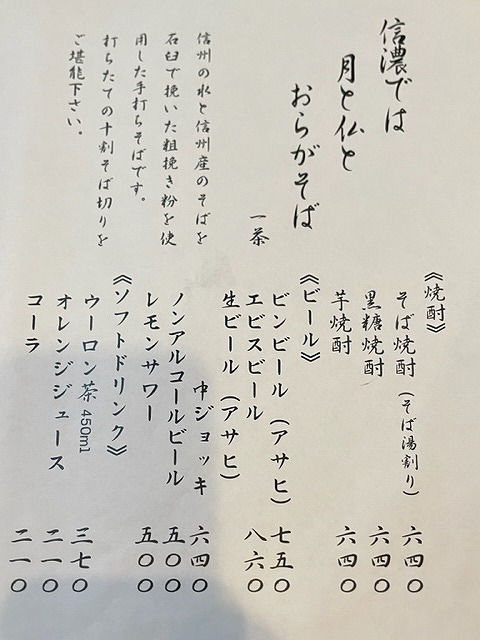 信濃では
月と仏と
おらがそば
一茶
信州の水と信州産のそばを
石臼で挽いた粗挽き粉を使
用した手打ちそばです。
打ちたての十割そば切りを
ご堪能下さい。
《焼酎》
そば焼酎（そば湯割り） 六四〇
黒糖焼酎 六四〇
芋焼酎 六四〇
《ビール》
ビンビール（アサヒ） 七五〇
エビスビール 八六〇
生ビール（アサヒ）
中ジョッキ 六四〇
ノンアルコールビール 五〇〇
レモンサワー 五〇〇
《ソフトドリンク》
ウーロン茶 450ml 三七〇
オレンジジュース 二一〇
コーラ 二一〇